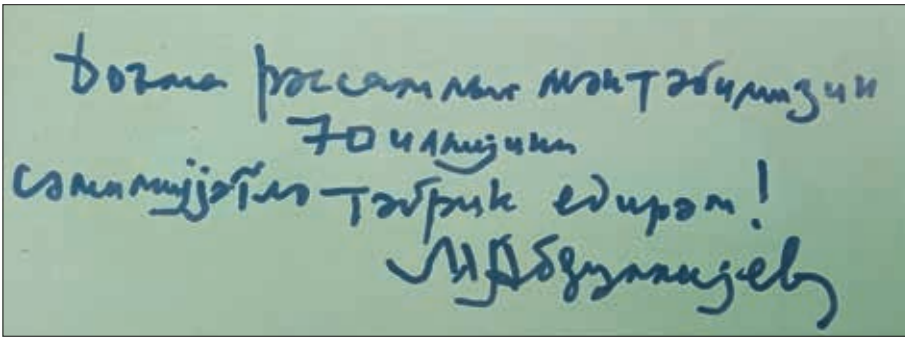 Доғма рәссамлыг мәктәбимизин
70 иллијини
сәмимијјәтлә тәбрик едирәм!
М.Абдуллајев